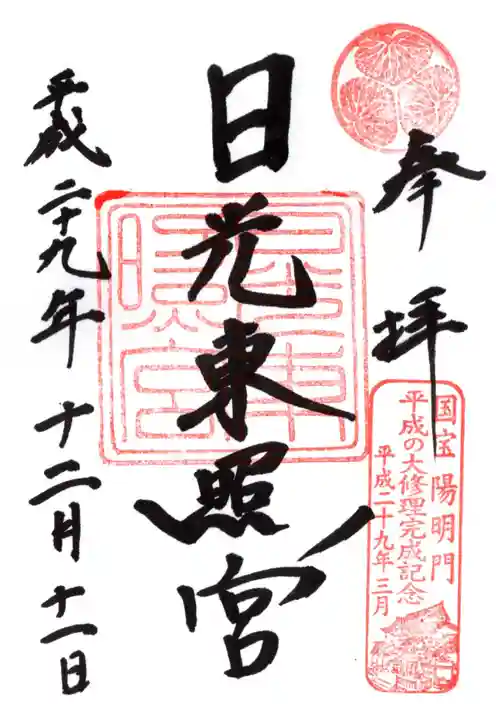 奉拝
国宝 陽明門
平成の大修理完成記念
平成二十九年三月
日光東照宮
平成二十九年十二月十一日